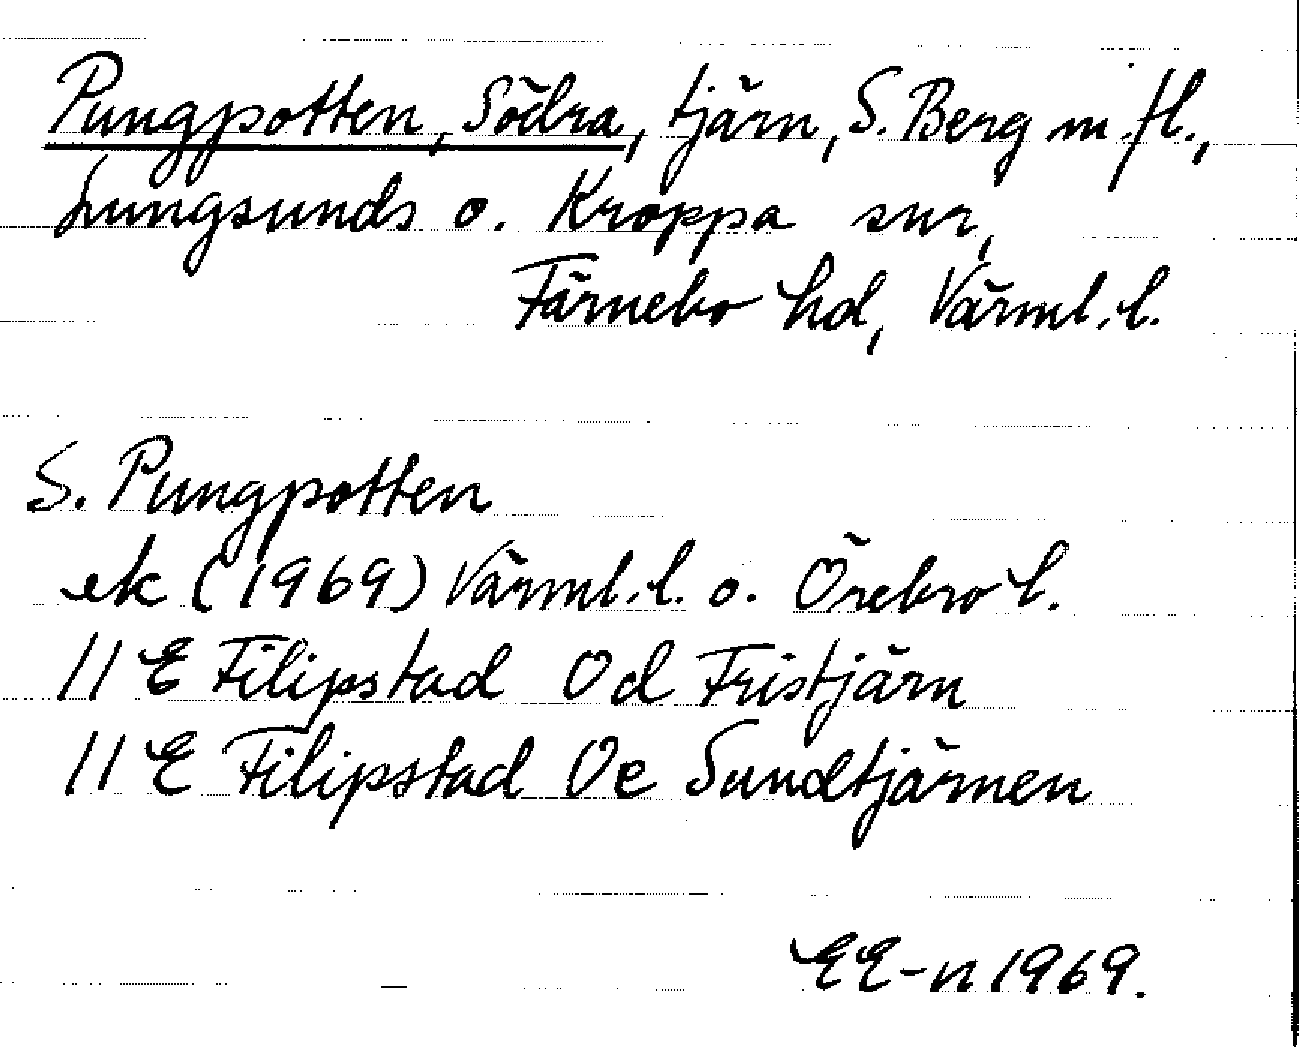 Pungpotten, Södra, tjärn, S. Berg m. fl.,
Lungsunds o. Kroppa snr,
Färnebo hd, Värml. l.
S. Pungpotten
ek (1969) Värml. l. o. Örebro l.
11 E Filipstad 0d Fristjärn
11 E Filipstad 0e Sundtjärnen
EE-n 1969.